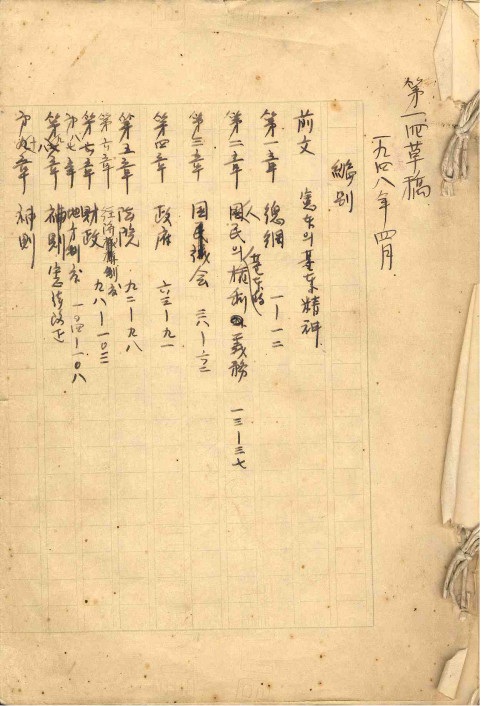 第一回草稿
一九四八年 四月
編別
前文 憲法의基本精神
第一章 總綱 一—一二
第二章 人民의基本的權利 義務 一三—三七
第三章 国民議会 三八—六二
第四章 政府 六三—九一
第五章 法院 九二—九八
第六章 経済制度
第七章 財政 九八—一〇三
第八章 地方制度 一〇四—一〇八
第九章 憲法改正
第十章 補則